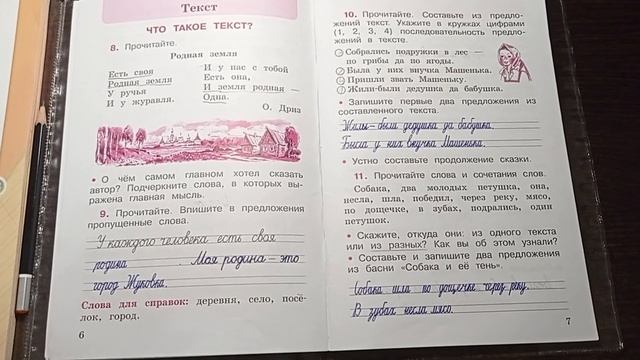 Текст
ЧТО ТАКОЕ ТЕКСТ?
8. Прочитайте.
Родная земля
Есть своя
Родная земля
У ручья
И у журавля.
И у нас с тобой
Есть она,
И земля родная —
Одна.
О. Дриз
• О чём самом главном хотел сказать
автор? Подчеркните слова, в которых вы-
ражена главная мысль.
9. Прочитайте. Впишите в предложения
пропущенные слова.
У каждого человека есть своя
родина. Моя родина – это
город Жуковка.
Слова для справок: деревня, село, посё-
лок, город.
6
10. Прочитайте. Составьте из предло-
жений текст. Укажите в кружках цифрами
(1, 2, 3, 4) последовательность предло-
жений в тексте.
Собрались подружки в лес —
по грибы да по ягоды.
2 Была у них внучка Машенька.
Пришли звать Машеньку.
1 Жили-были дедушка да бабушка.
• Запишите первые два предложения из
составленного текста.
Жили-были дедушка да бабушка.
Была у них внучка Машенька.
• Устно составьте продолжение сказки.
11. Прочитайте слова и сочетания слов.
Собака, два молодых петушка, она,
несла, шла, победил, через реку, мясо,
по дощечке, в зубах, подрались, один
петушок.
• Скажите, откуда они: из одного текста
или из разных? Как вы об этом узнали?
• Составьте и запишите два предложения
из басни «Собака и её тень».
Собака шла по дощечке через реку.
В зубах несла мясо.
7